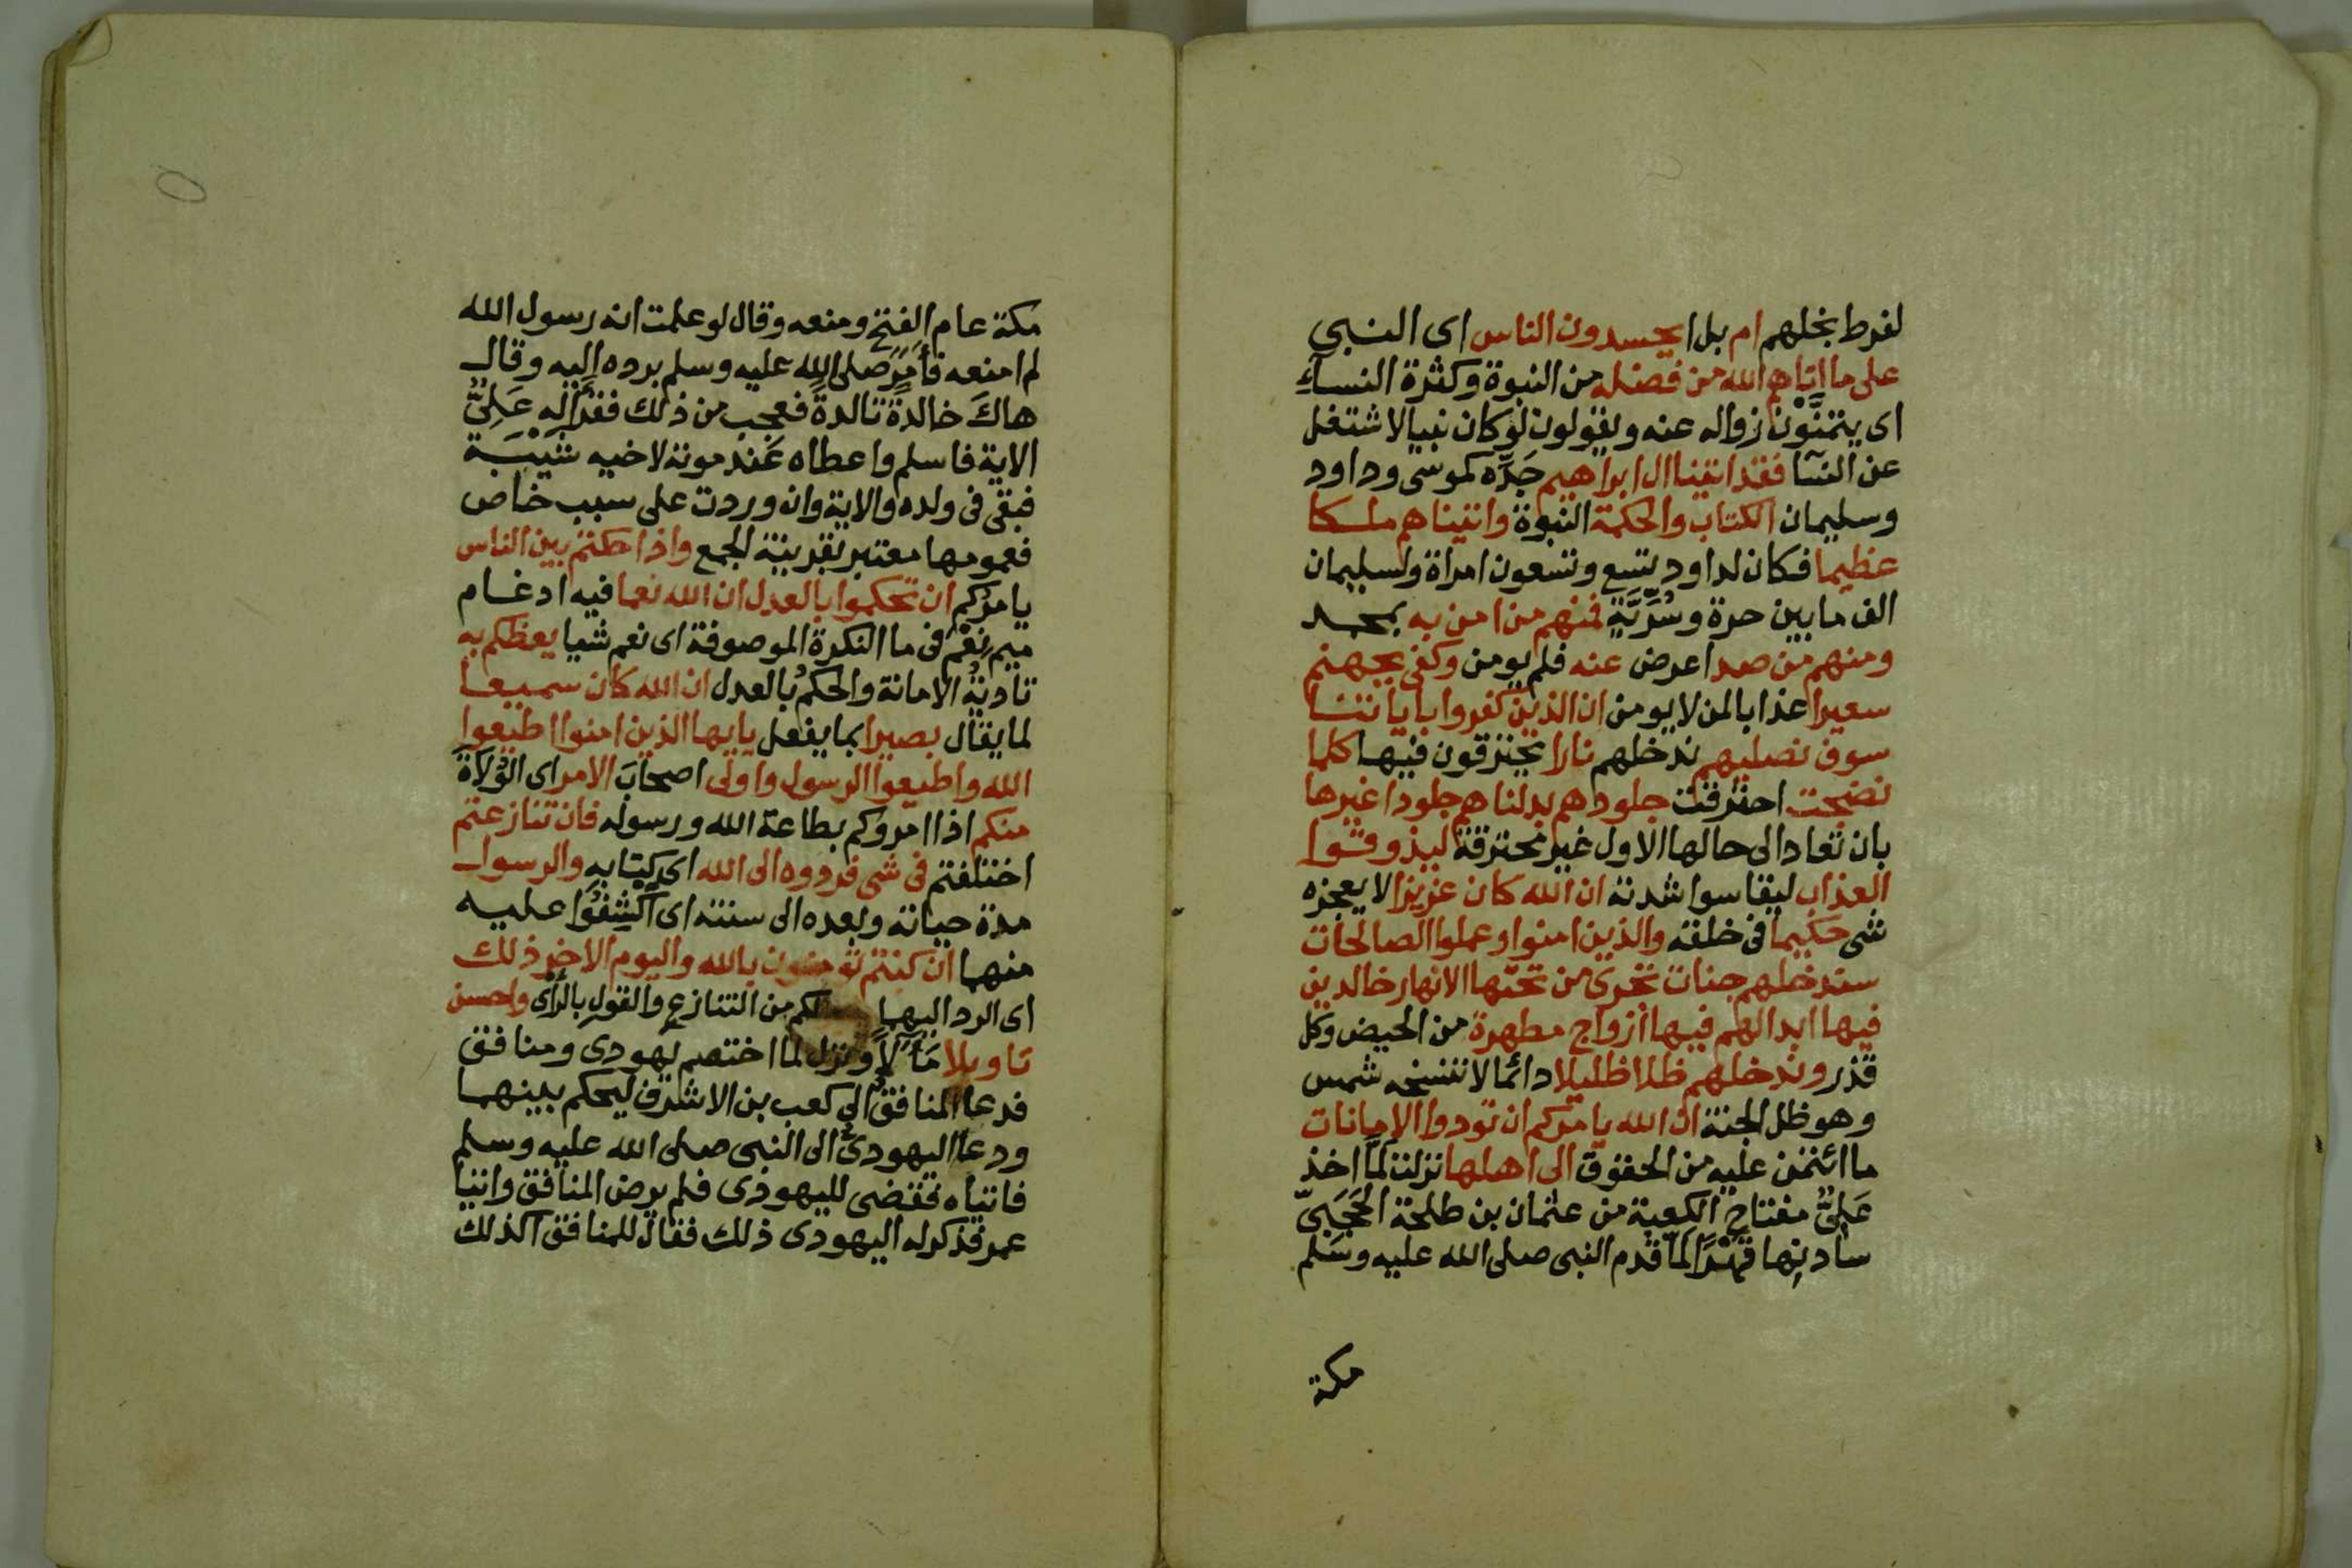 لفرط بخلهم ام بل ا يحسدون الناس اى النبى
على ما اتاهم الله من فضله من النبوة وكثرة النساء
اى يتمنون زواله عنه ويقولون لو كان نبيا لاشتغل
عن النسا فقد اتينا ال ابراهيم جده كموسى وداود
وسليمان الكتاب والحكمة النبوة واتيناهم ملكا
عظيما فكان لداود تسع وتسعون امراة ولسليمان
الف ما بين حرة وسُرِّيَّةٍ فمنهم من امن به بمحمد
ومنهم من صد اعرض عنه فلم يومن وكفى بجهنم
سعيرا عذابا لمن لا يومن ان الذين كفروا باياتنا
سوف نصليهم ندخلهم نارا يحترقون فيها كلما
نضجت احترقت جلودهم بدلناهم جلودا غيرها
بان تعاد الى حالها الاول غير محترقة ليذوقوا
العذاب ليقاسوا شدته ان الله كان عزيزا لا يعجزه
شى حكيما فى خلقه والذين امنوا وعملوا الصالحات
سندخلهم جنات تجرى من تحتها الانهار خالدين
فيها ابدا لهم فيها أزواج مطهرة من الحيض وكل
قذر وندخلهم ظلا ظليلا دائما لا تنسخه شمس
وهو ظل الجنة ان الله يامركم ان تودوا الامانات
ما ائتمن عليه من الحقوق الى اهلها نزلت لما اخذ
عَلِىٌّ مفتاح الكعبة من عثمان بن طلحة الحَجَبِىّ
سادنِها قهْرًا لما قدم النبى صلى الله عليه وسلم
مكة
مكة عام الفتح ومنعه وقال لو علمت انه رسول الله
لم امنعه فأَمَرَ صلى الله عليه وسلم برده اليه وقال
هاكَ خالدةً تالدةً فعجب من ذلك فقرأ له عَلِىٌّ
الاية فاسلم واعطاه عند موته لاخيه شَيْبَة
فبقى فى ولده والاية وان وردت على سبب خاص
فعمومها معتبر بقرينة الجمع واذا حكمتم بين الناس
يامركم ان تحكموا بالعدل ان الله نعما فيه ادغام
ميم نِعْمَ فى ما النكرة الموصوفة اى نعم شيا يعظكم به
تأديةُ الامانة والحكمُ بالعدل ان الله كان سميعا
لما يقال بصيرا بما يفعل يايها الذين امنوا اطيعوا
الله واطيعوا الرسول واولى اصحابَ الامر اى الوُلَاةَ
منكم اذا امروكم بطاعة الله ورسوله فان تنازعتم
اختلفتم فى شى فردوه الى الله اى كتابه والرسول
مدة حياته وبعده الى سنته اى اكْشِفُوا عليه
منهما ان كنتم تومنون بالله واليوم الاخر ذلك
اى الرد اليهما لكم من التنازع والقول بالرأى واحسن
تاويلا مَآلًا ونزل لما اختصم يهودى ومنافق
فدعا المنافقُ الى كعب بن الاشرف ليحكم بينهما
ودعا اليهودىُّ الى النبى صلى الله عليه وسلم
فاتياه فقضى لليهودى فلم يرض المنافق واتيا
عمر فذكر له اليهودى ذلك فقال للمنافق اكذلك